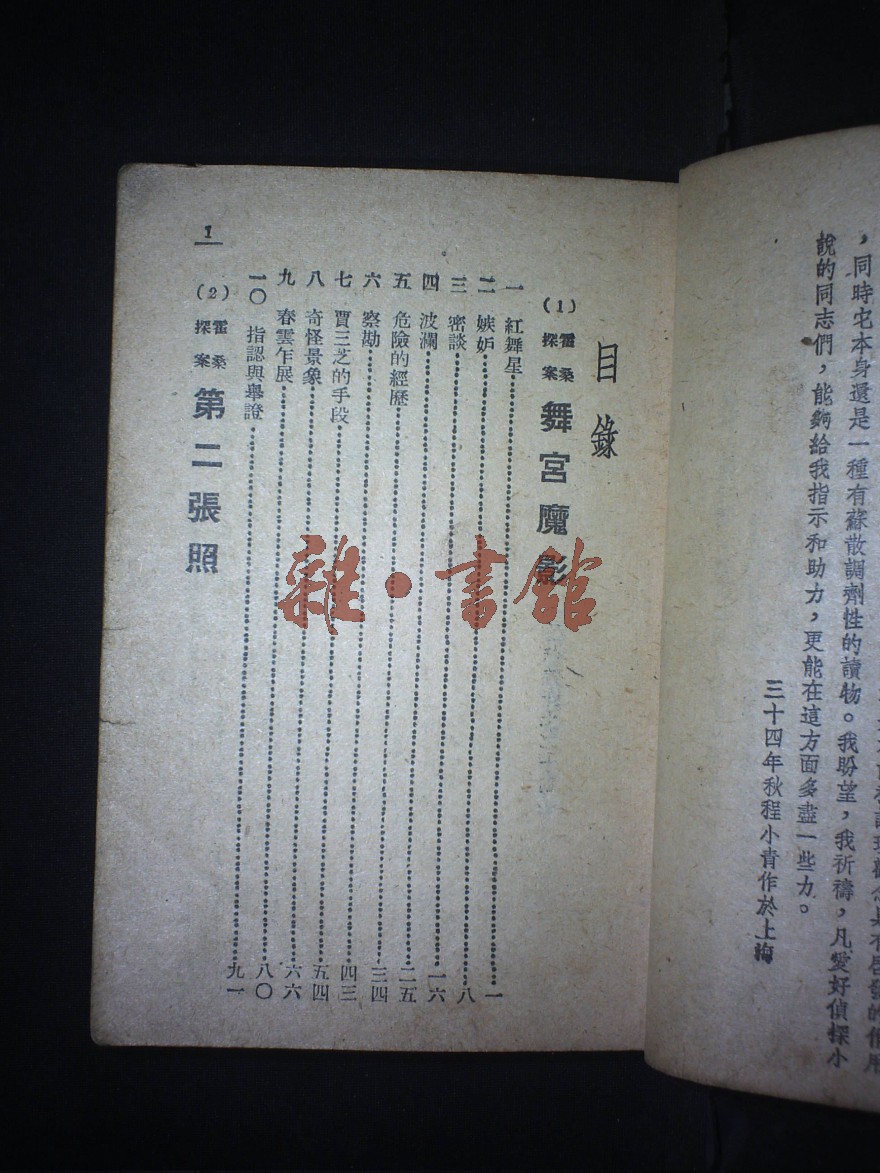 ，同時宅本身還是一種有蘇散調劑性的讀物。我盼望，我祈禱，凡愛好偵探小
說的同志們，能夠給我指示和助力，更能在這方面多盡一些力。
三十四年秋程小青作於上海
目錄
(1) 霍桑探案 舞宮魔影
一 紅舞星 一
二 嫉妒 八
三 密談 一六
四 波瀾 二五
五 危險的經歷 三四
六 察勘 四三
七 賈三芝的手段 五四
八 奇怪景象 六六
九 春雲乍展 八〇
一〇 指認與舉證 九一
(2) 霍桑探案 第二張照
1
雜·書舘